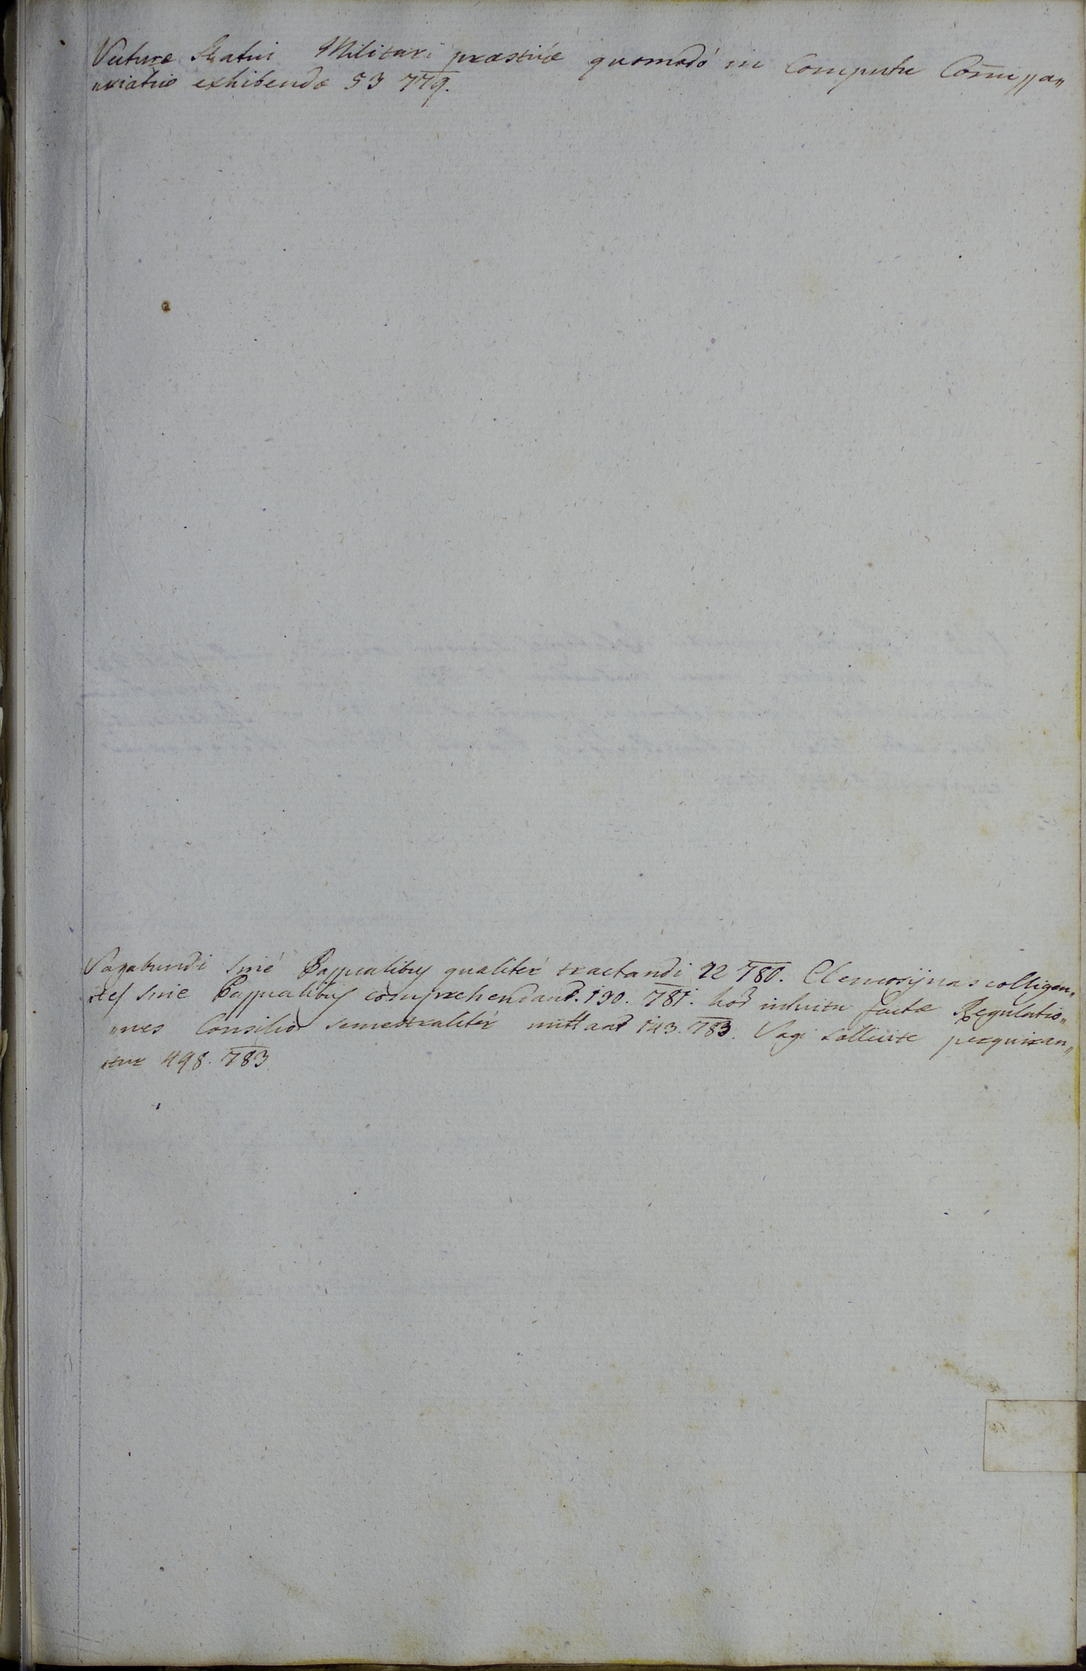 Vecturæ Statui Militari præstitæ quomodò in Computu Com̃issa„
„riatico exhibendæ 53 779.
Vagabundi sinè Passualibus qualitèr tractandi 22 780. Eleemosÿnas colligen„
tes sine Passualibus comprehendant. 190. 781. hoc intuitu factæ Regulatio„
„nes Consilio semestralitèr mittant 143. 783. Vagi sollicite perquiran„
tur 498. 783